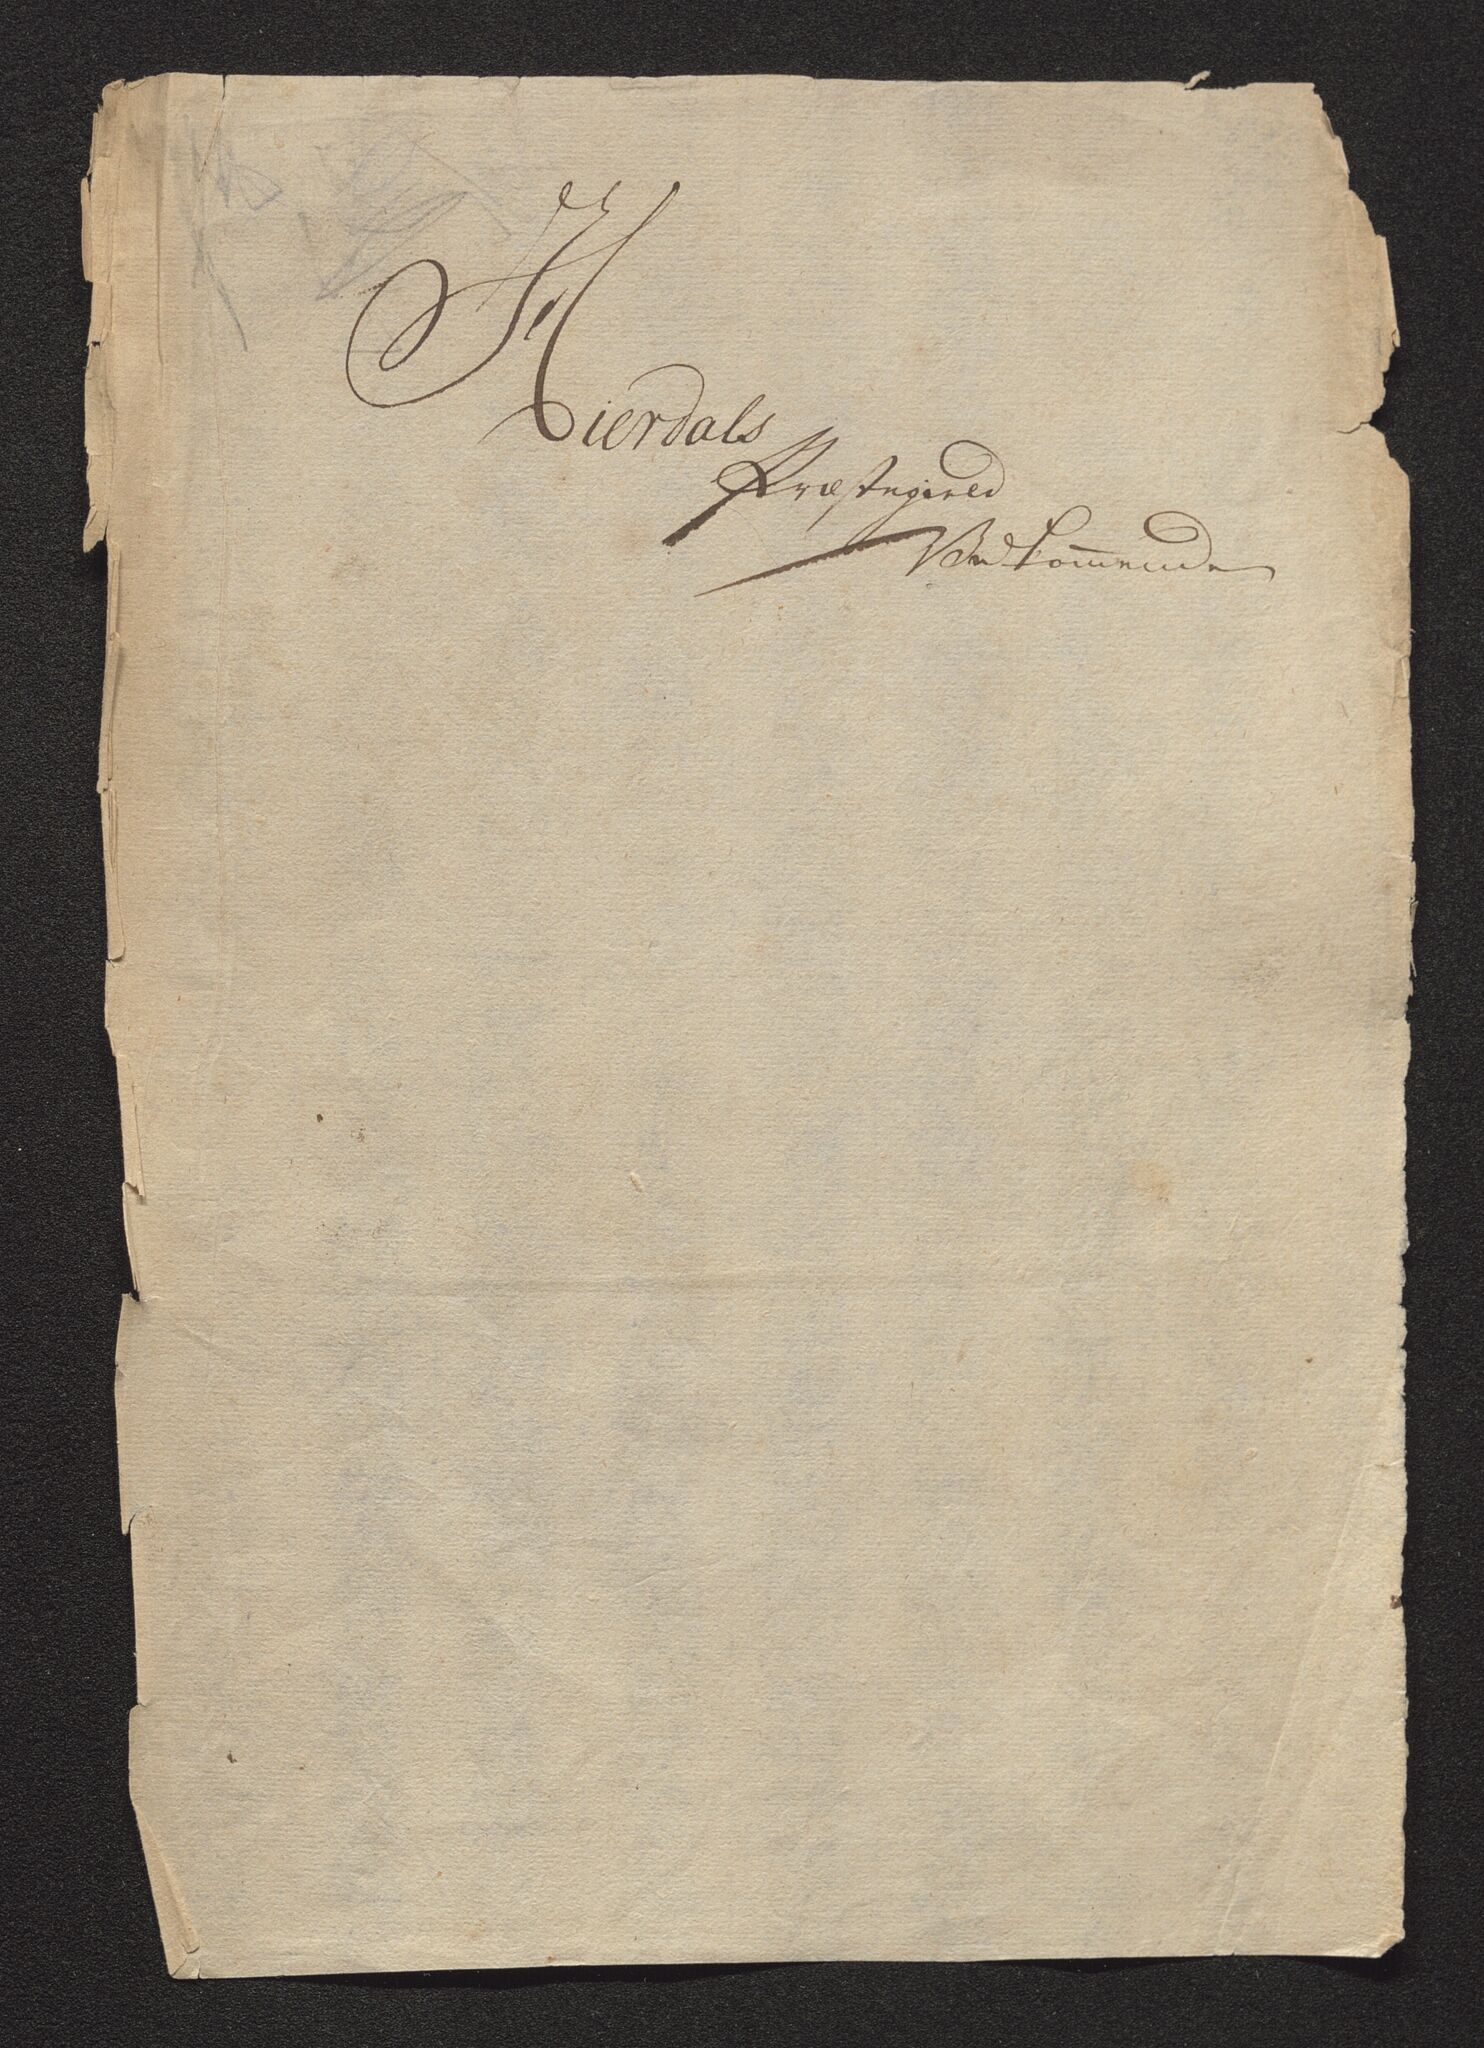 Hierdals
Præstegield
Vedkommende